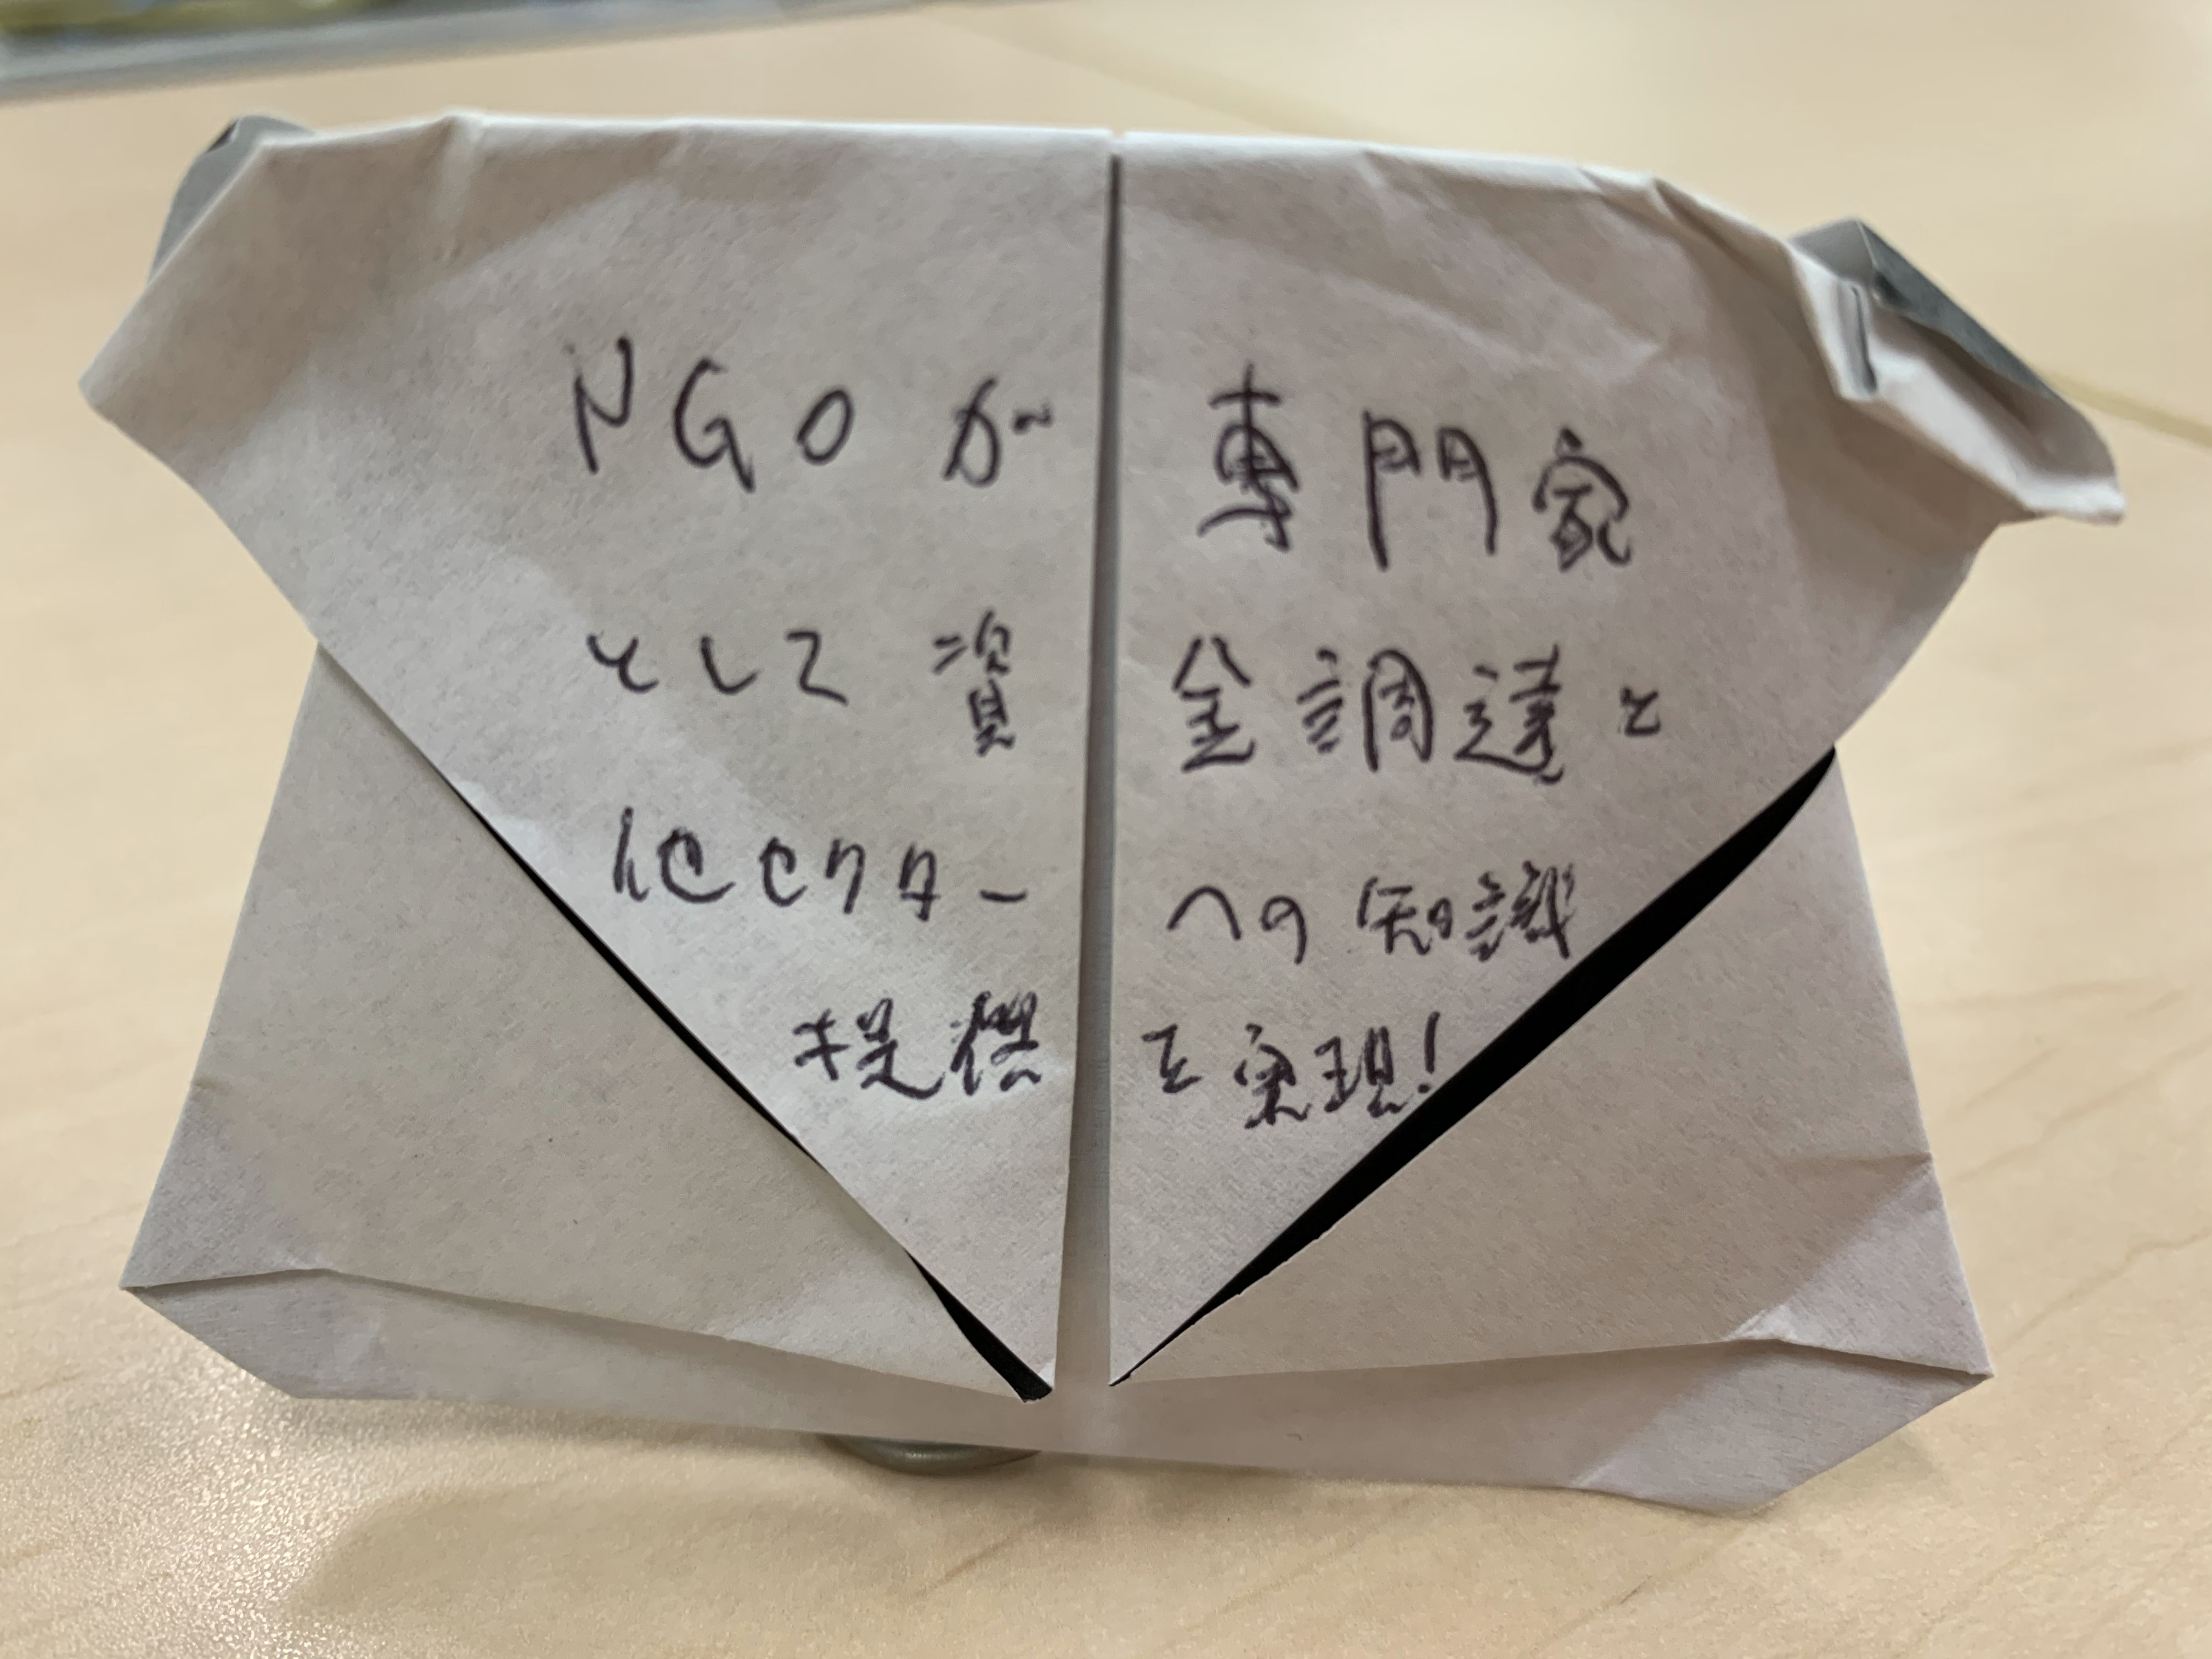 NGOが専門家
として資金調達と
他セクターへの知識
提供を実現!